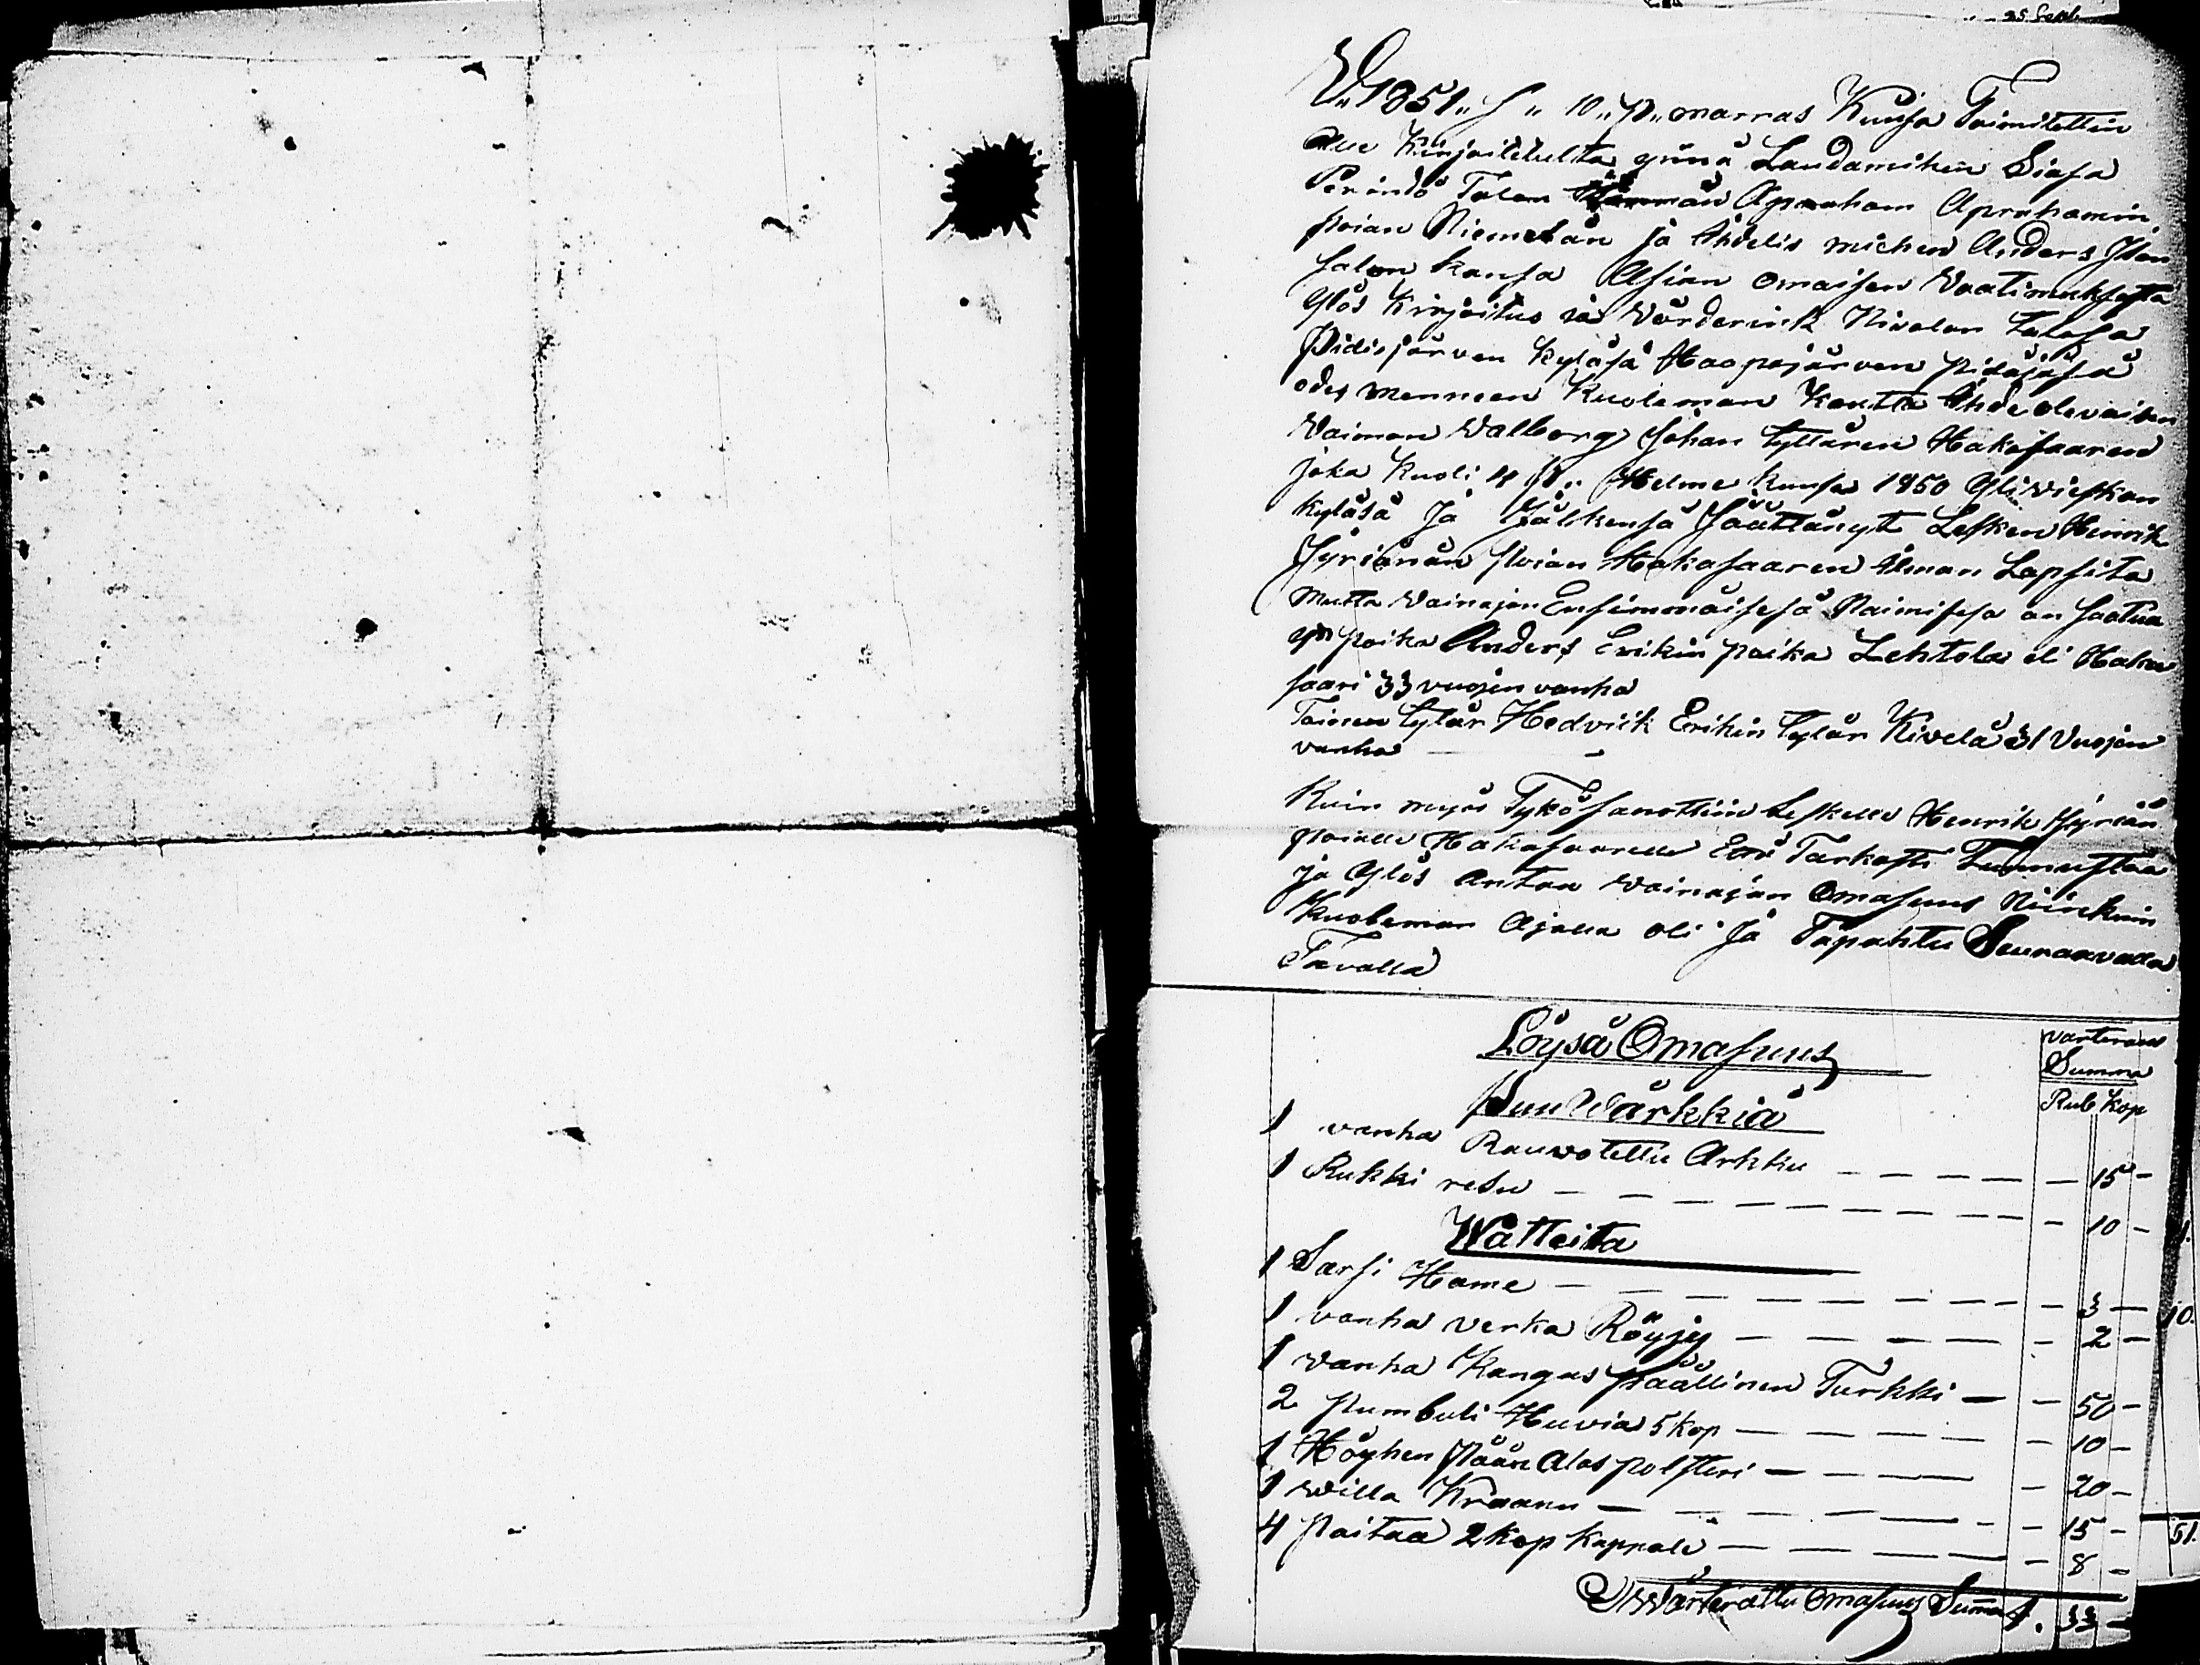 25 Sept
V. 1851 S. 10 p. marras Kuusa Toimitettin
alle Kirjoitetulta ynnä Laudamihen Siasa
Perindö Talon Apraham Aprahamin
poian Niemelän ja Ähdelis miehen Anders
salon kansa Asian omaisen Vaatimuksesta
Ylös Kirjoitus ja Värderink Nivalan
Pidisjärven kyläsä Haapajärven pidäjäsä
edes menneen Kuoleman Kautta Ähde olevaisen
Vaimon Walborg Johan tyttären Hakasaaren
joka Kuoli 4 p. Helme kuusa 1850 Ylivieskan
kyläsä Ja Jälkensä Jäättänyt Lesken Henrik
Jyriänän poian Hakasaaren ilman Lapsita
Mutta Vainajan Ensimmäisesä Naimisesa on saatua
yx poika Anders Erikin poika Lehtola eli Haka
saari 33 vuojen vanha
Toinen tytär Hedviik Erikin Tytär Kivelä 31 Vuojen
vanha
Kuin myös Tykö sanottiin Leskelle Henrik Hyriän
poialle Hakasaarelle Että Tarkasti Tunnustaa
ja Ylös Antaa Vainajan Omasuus Niinkuin
Kuoleman Ajalla oli Ja Tapahtu Seuraavalla
Tavalla
Löysä Omasuus
varteraus
Summa
Rub Kop
Puu Wärkkiä
1 vanha Rauvotettu Arkku 15
1 Rukki resu 10
Wåtteita
1 Sarsi Hame 3
1 vanha verka Röyjy 2
1 vanha Kangas päällinen Turkki 50
2 Pumbuli Huvia 5 kop 10
1 Höyhen Pään Alas polsteri 20
1 Willa Kraanu 15
4 Paitaa 2 kop kappale 8
Wärterattu omasuus Summa 1. 33
10.
51.